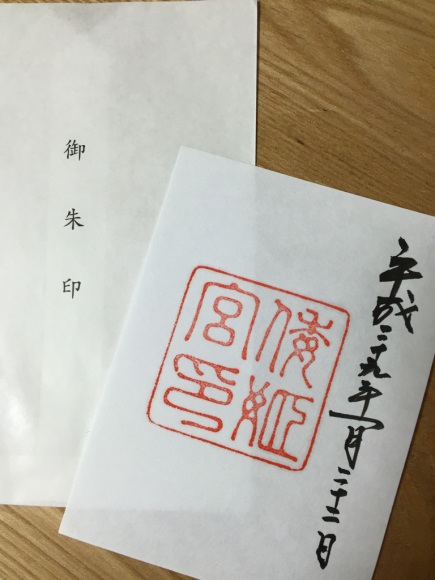 御朱印
平成二十九年一月二十二日
倭姫
宮印